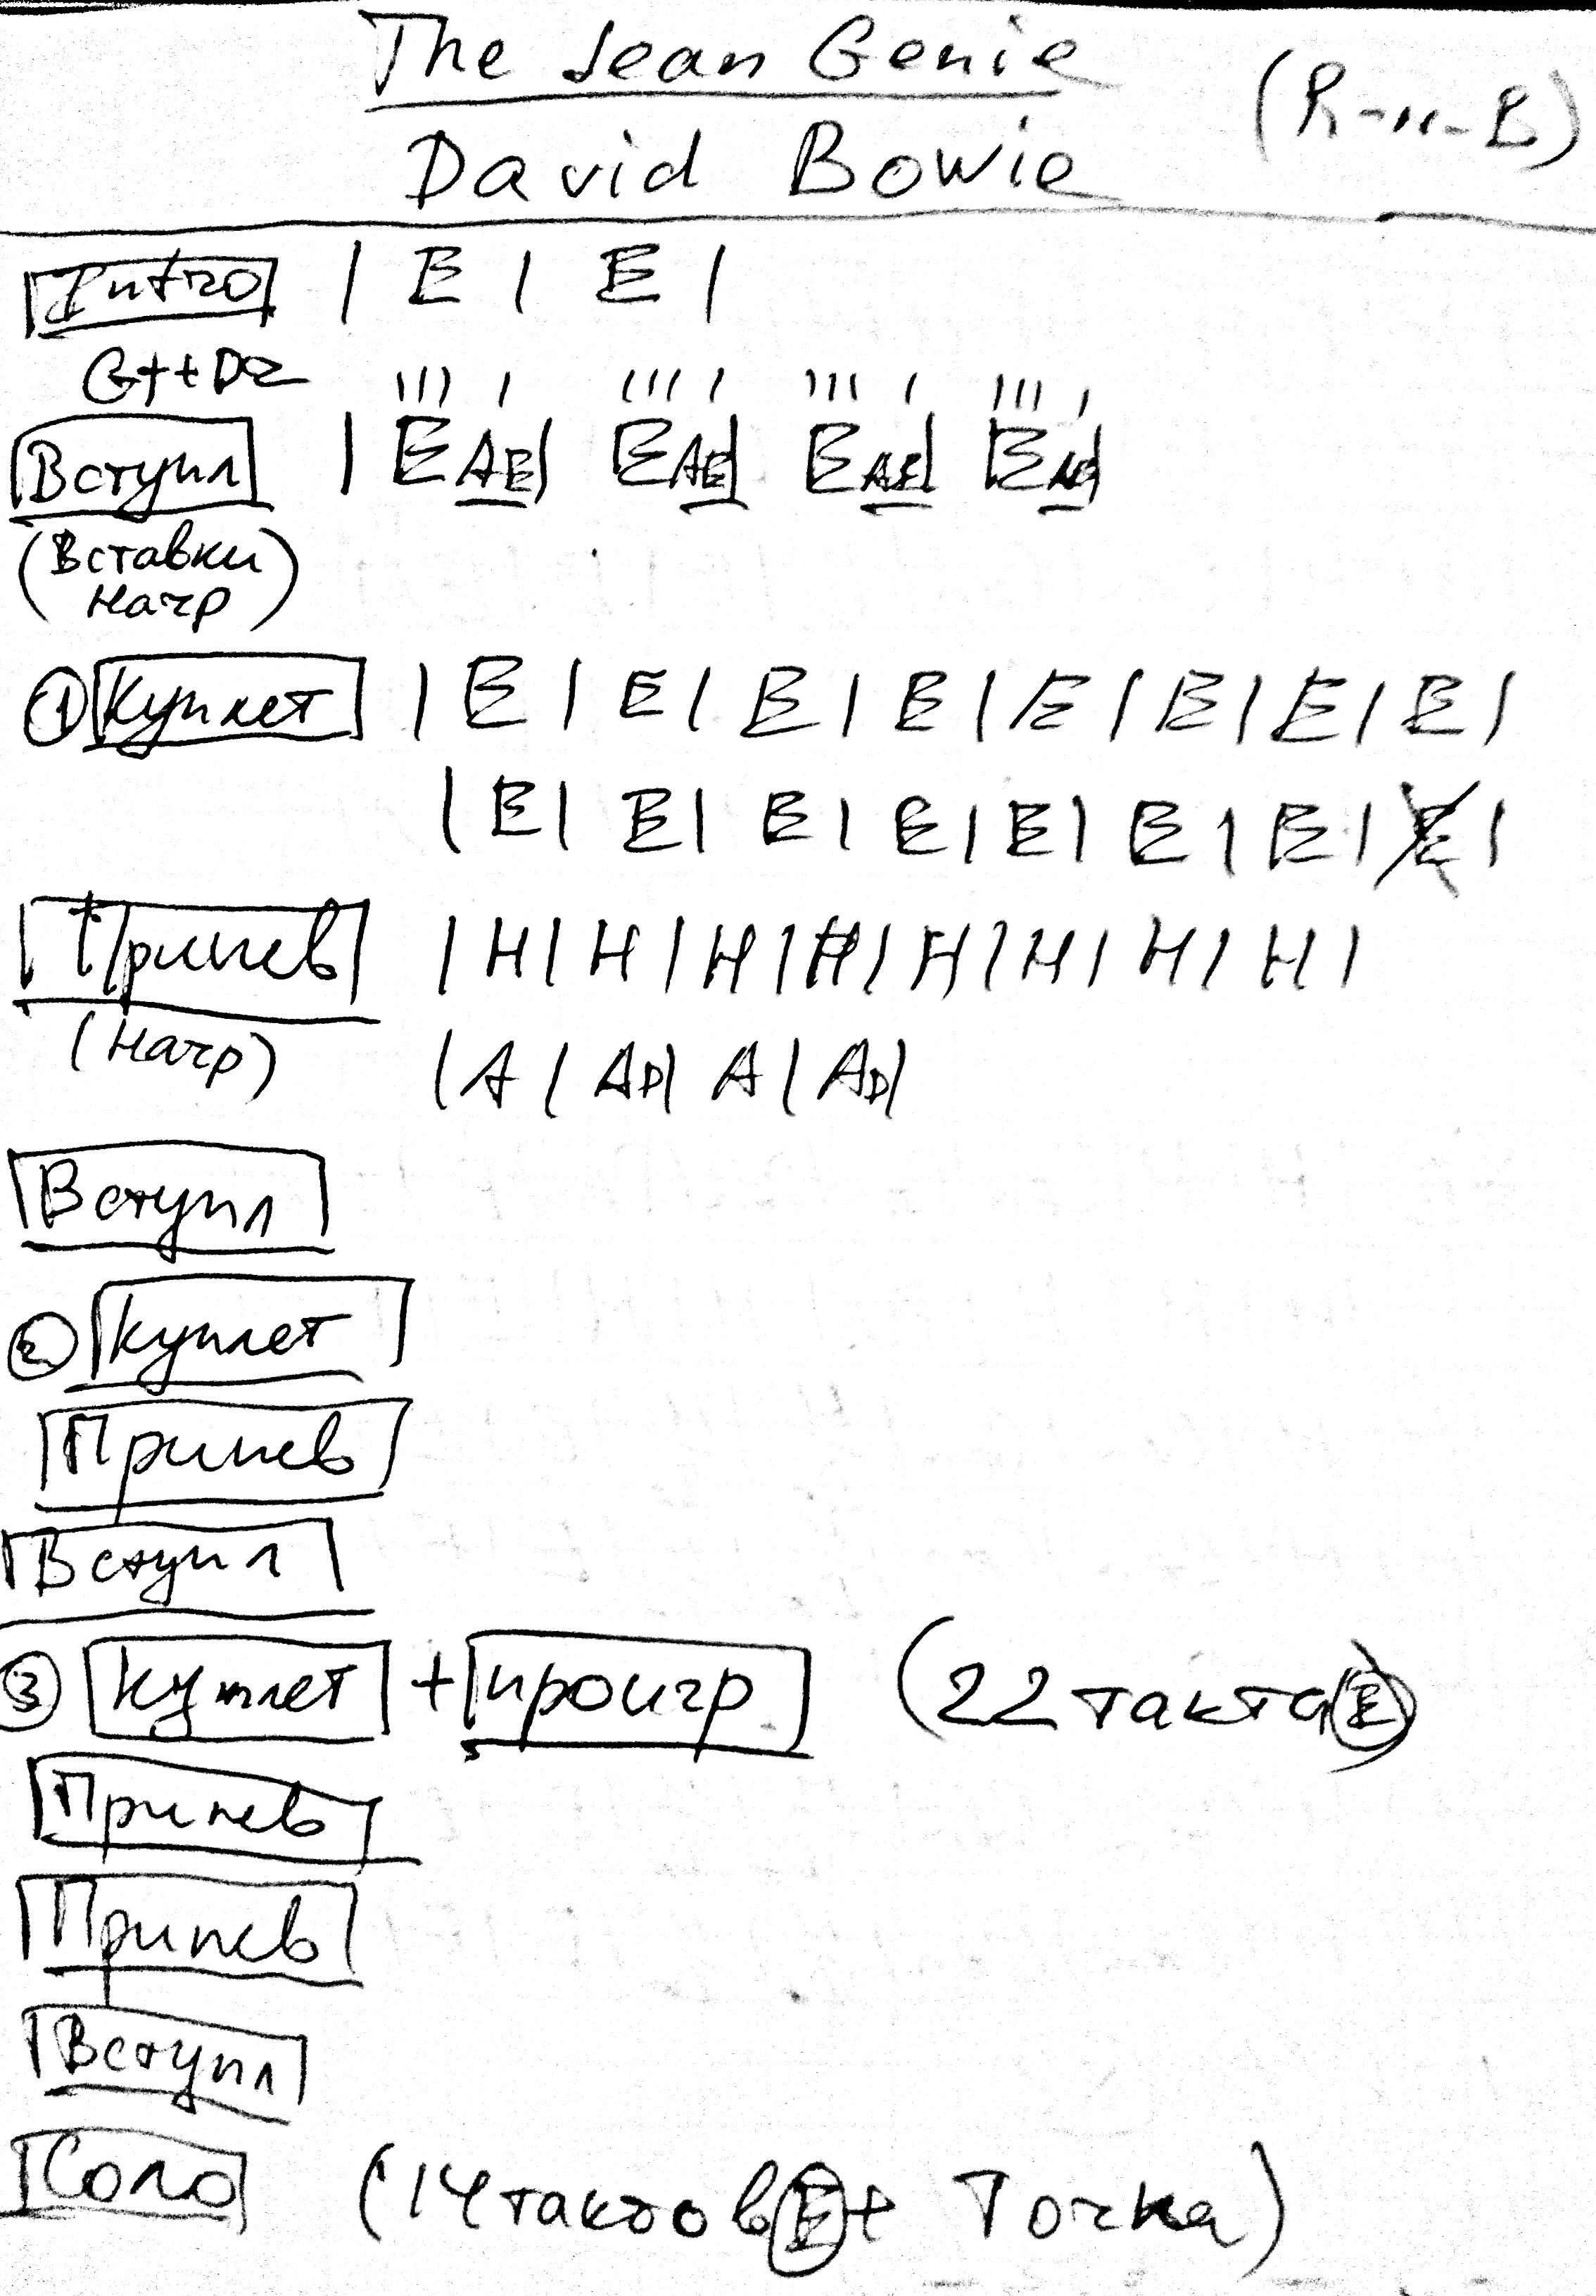 The Jean Genie (R-n-B)
David Bowie
Intro | E | E |
Gtt Dz ||| | ||| | ||| | ||| |
Вступл | E AE | E AE | E AE | E AE |
(Вставки
Harp)
① Куплет | E | E | E | E | E | E | E | E |
| E | E | E | E | E | E | E | E |
Припев | H | H | H | H | H | H | H | H |
(Harp) | A | AD | A | AD |
Вступл
② Куплет
Припев
Вступл
③ Куплет + проигр (22 такта E)
Припев
Припев
Вступл
Соло (14 тактов E + Точка)